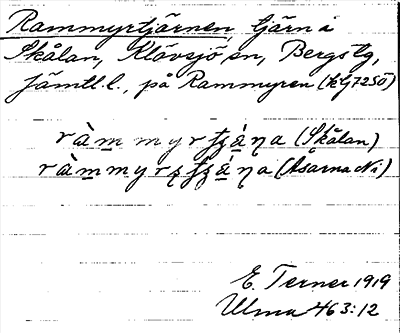 Rammyrtjärnen, tjärn i
Skålan, Klövsjö sn, Bergs tg,
Jämtl. l., på Rammyren (kLj7250)
ràm myr (Skålan)
ràmmyr (Åsarna Ni)
E. Terner 1919
Ulma 463:12